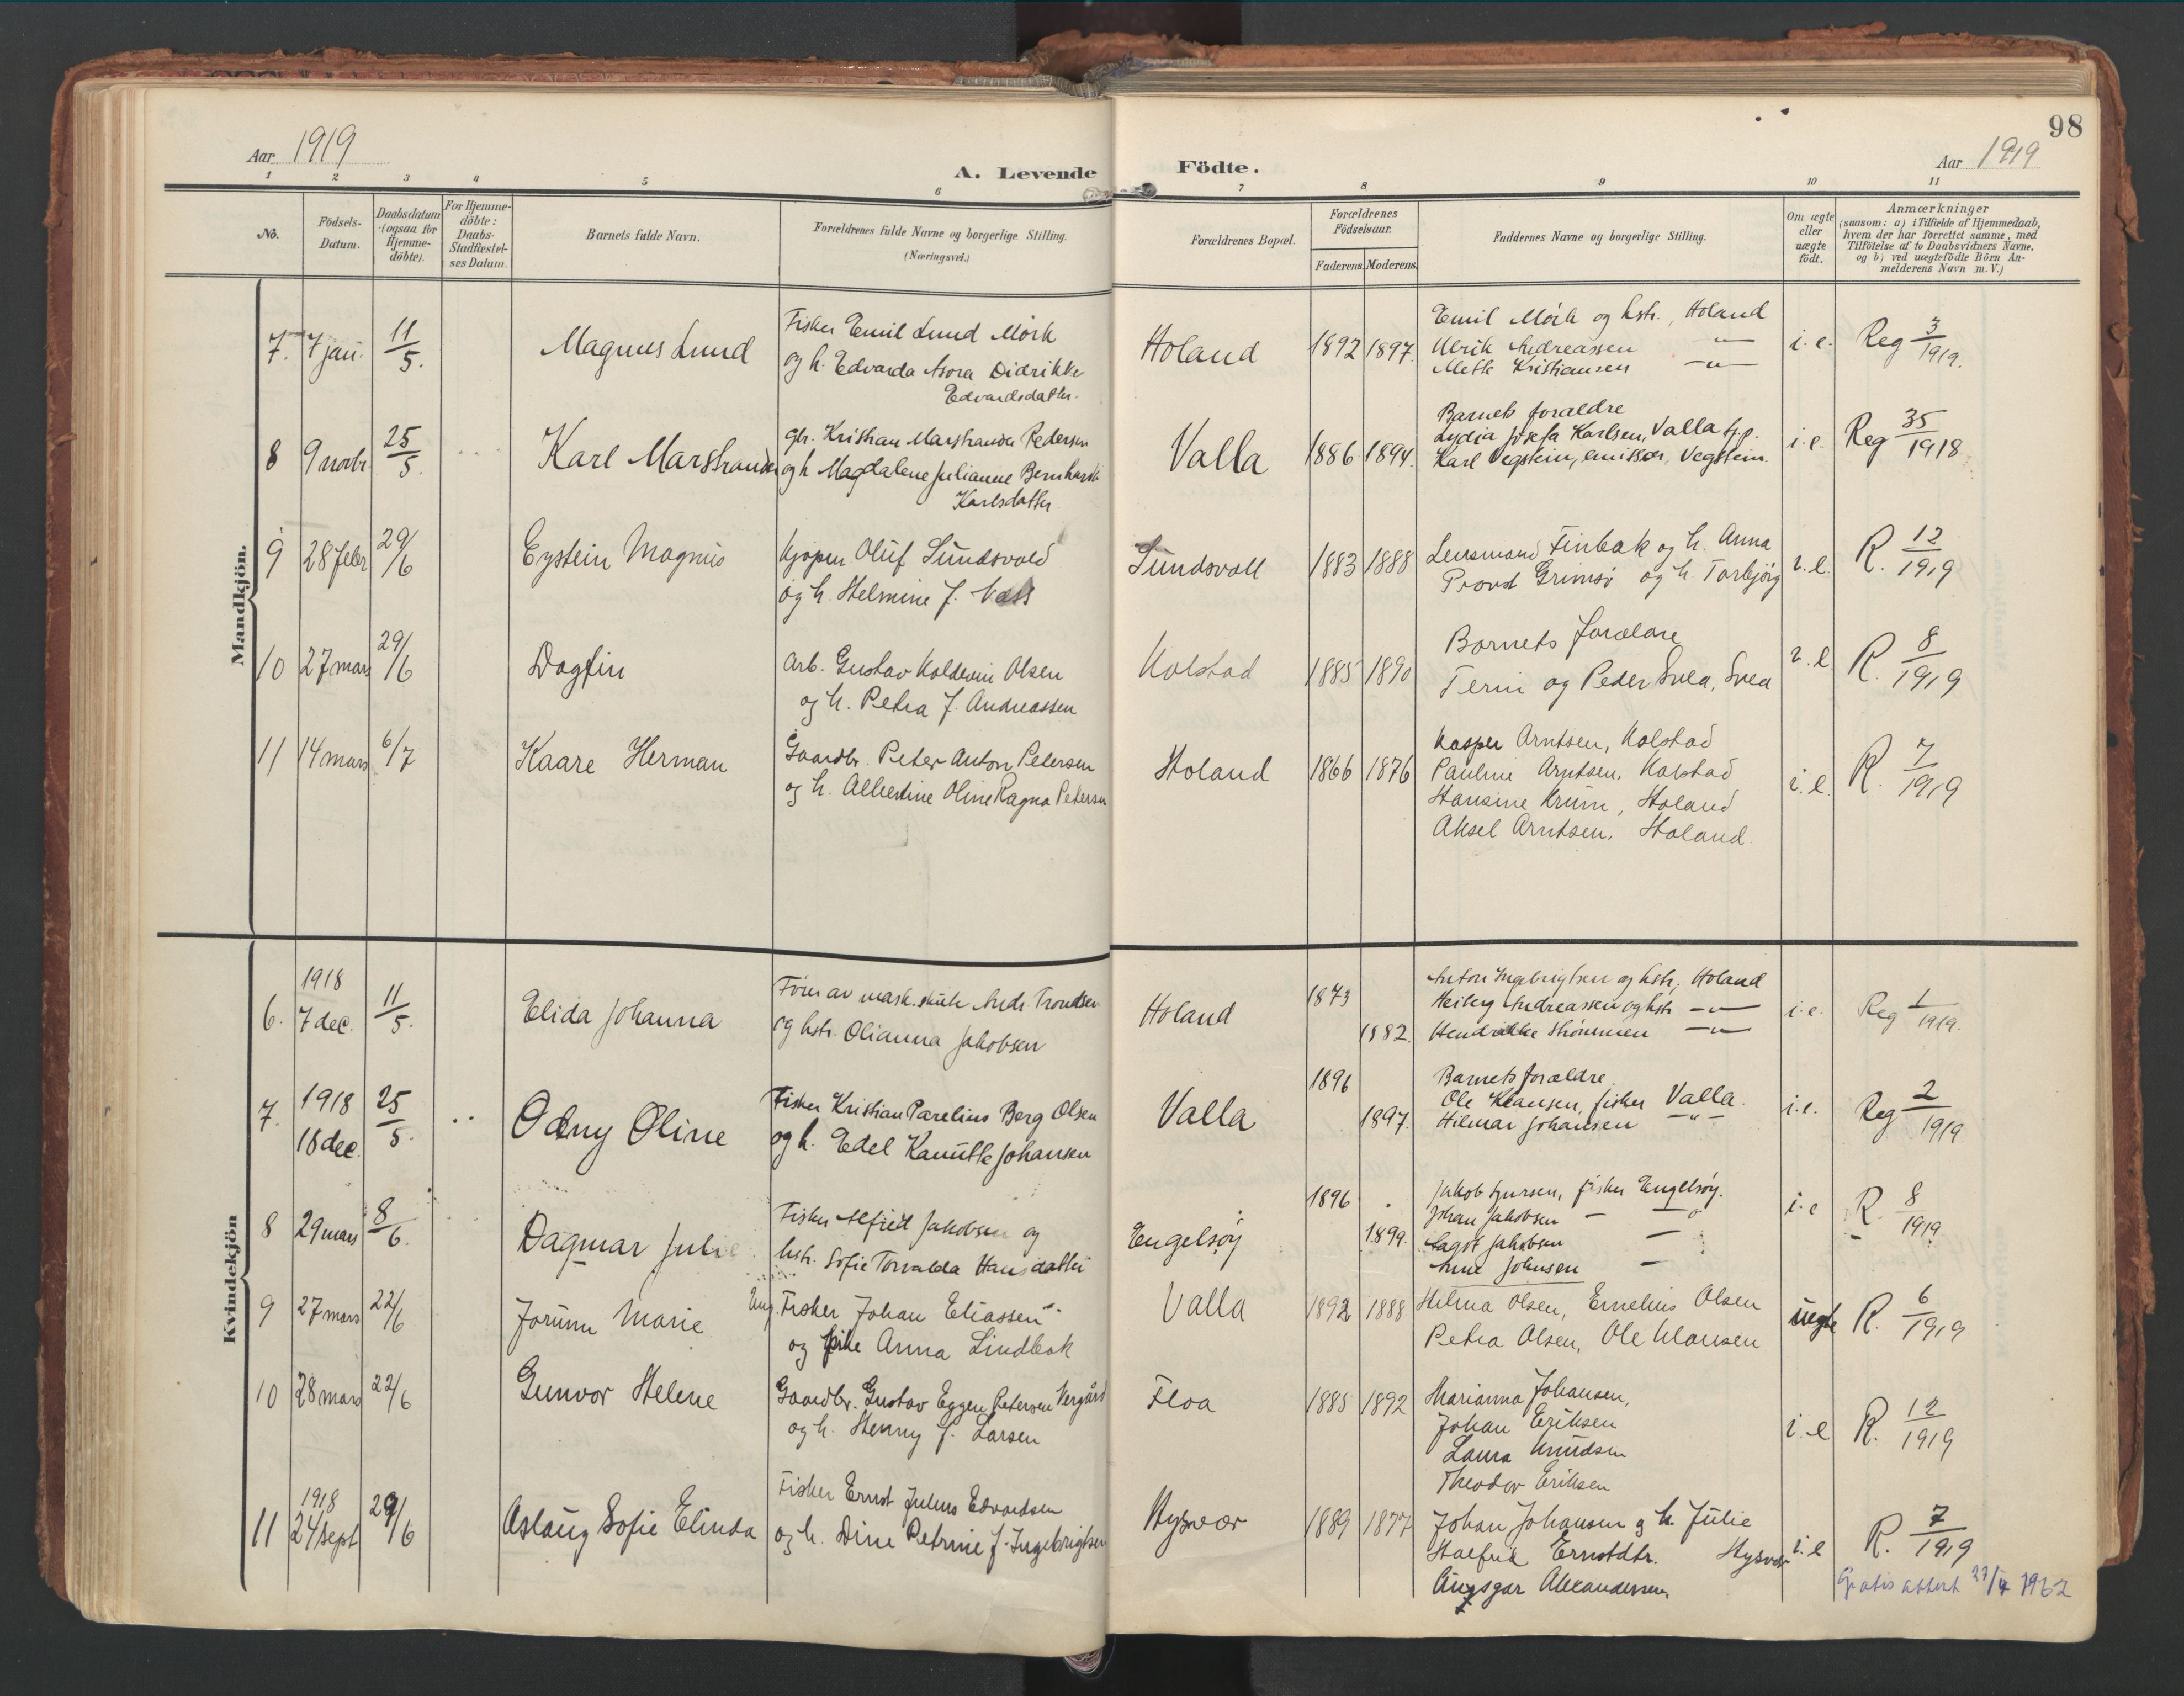 98
Aar 1919
A. Levende Födte.
Aar 1919
1 2 3 4 5 6 7 8 9 10 11
No.
Födsels-
Datum.
Daabsdatum
(ogsaa for
Hjemme-
döbte).
For Hjemme-
döbte:
Daabs-
Stadfæstel-
ses Datum.
Barnets fulde Navn.
Forældrenes fulde Navne og borgerlige Stilling.
(Næringsvei.)
Forældrenes Bopæl.
Forældrenes
Födselsaar.
Faderens. Moderens.
Faddernes Navne og borgerlige Stilling.
Om ægte
eller
uægte
födt.
Anmærkninger
(saasom: a) i Tilfælde af Hjemmedaab,
hvem der har forrettet samme, med
Tilföielse af to Daabsvidners Navne,
og b) ved uægtefödte Börn An-
melderens Navn m. V.)
Mandkjön.
7. 7 jan. 11/5. Magnus Lund
Fisker Emil Lund Mörk
og h. Edvarda Asora Didrikke
Edvardsdatter.
Holand 1892 1897.
Emil Mörk og hstr., Holand
Ulrik Andreassen —"—
Mette Kristiansen —"—
i. e. Reg 3/1919.
8 9 novbr. 25/5. Karl Marstrander
gbr. Kristian Marstrander Pedersen
og h Magdalene Julianne Bernharda
Karlsdatter
Valla 1886 1894.
Barnets foraldre
Lydia Josefa Karlsen, Valla
Karl Vegstein, emissær, Vegstein.
i. e. Reg 35/1918
9 28 febr 29/6 Eystein Magnus
Kjøpm Oluf Sundsvold
og h. Helmine J. Næss
Sundsvoll 1883 1888
Lensmand Finbak og h. Anna
Provst Grimsø og h. Torbjörg
i. e. R. 12/1919
10 27 mars 29/6 Dagfin
Arb. Gustav Koldevin Olsen
og h. Petra J. Andreassen
Kolstad 1885 1890
Barnets forældre
Terni og Peder Svea, Svea
i. e. R. 8/1919
11 14 mars 6/7 Kaare Herman
Gaardbr. Peter Anton Petersen
og h. Albertine Oline Ragna Petersen
Holand 1866 1876
Kasper Arntsen, Kolstad
Pauline Arntsen, Kolstad
Hansine Krum, Holand
Aksel Arntsen, Holand.
i. e. R. 7/1919
Kvindekjön
6. 1918
7 dec. 11/5. Elida Johanna
Förer av mask. skute Andr. Trondsen
og hstr. Olianna Jakobsen
Holand 1873
1882.
Anton Ingebrigtsen og hstr, Holand
Andreassen og hstr —"—
—"—
i. e. Reg 1/1919.
7. 1918
18 dec. 25/5. Odny Oline
Fisker Kristian Parelius Berg Olsen
og h. Edel Kanutte Johansen
Valla 1896
1897.
Barnets forældre
Ole Klausen, fisker Valla.
Hilmar Johansen —"—
i. e. Reg 2/1919
8 29 mars 8/6. Dagmar Julie
Fisker Alfred Jakobsen og
hstr. Sofie Torvalda Hansdatter
Engelsöy 1896
1899.
Jakob Sjursen, fisker Engelsöy.
Johan Jakobsen —
Jakobsen —
Anne Johnsen —
i. e R. 8/1919
9 27 mars 22/6 Jorunn Marie
Ung. Fisker Johan Eliassen
og pike Anna Lindbak
Valla 1892 1888
Helma Olsen, Ernelius Olsen
Petra Olsen, Ole Klausen
uegte R. 6/1919
10 28 mars 22/6 Gunvor Helene
Gaardbr. Gustav Eggen Petersen Vergård
og h. Henny J. Larsen
Floa 1885 1892
Marianna Johansen,
Johan Eriksen
Laura Knudsen
Theodor Eriksen
i. e R. 12/1919
11 1918
24 sept 29/6 Aslaug Sofie Elinda
Fisker Ernst Julius Edvardsen
og h. Dine Petrine J. Ingebrigtsen
Hysvær 1889 1877
Johan Johansen og h. Julie
Halfrid Ernstdtr. Hysvær
Ansgar Alexandersen
i. e R. 7/1919
Gratis attest 27/4 1962